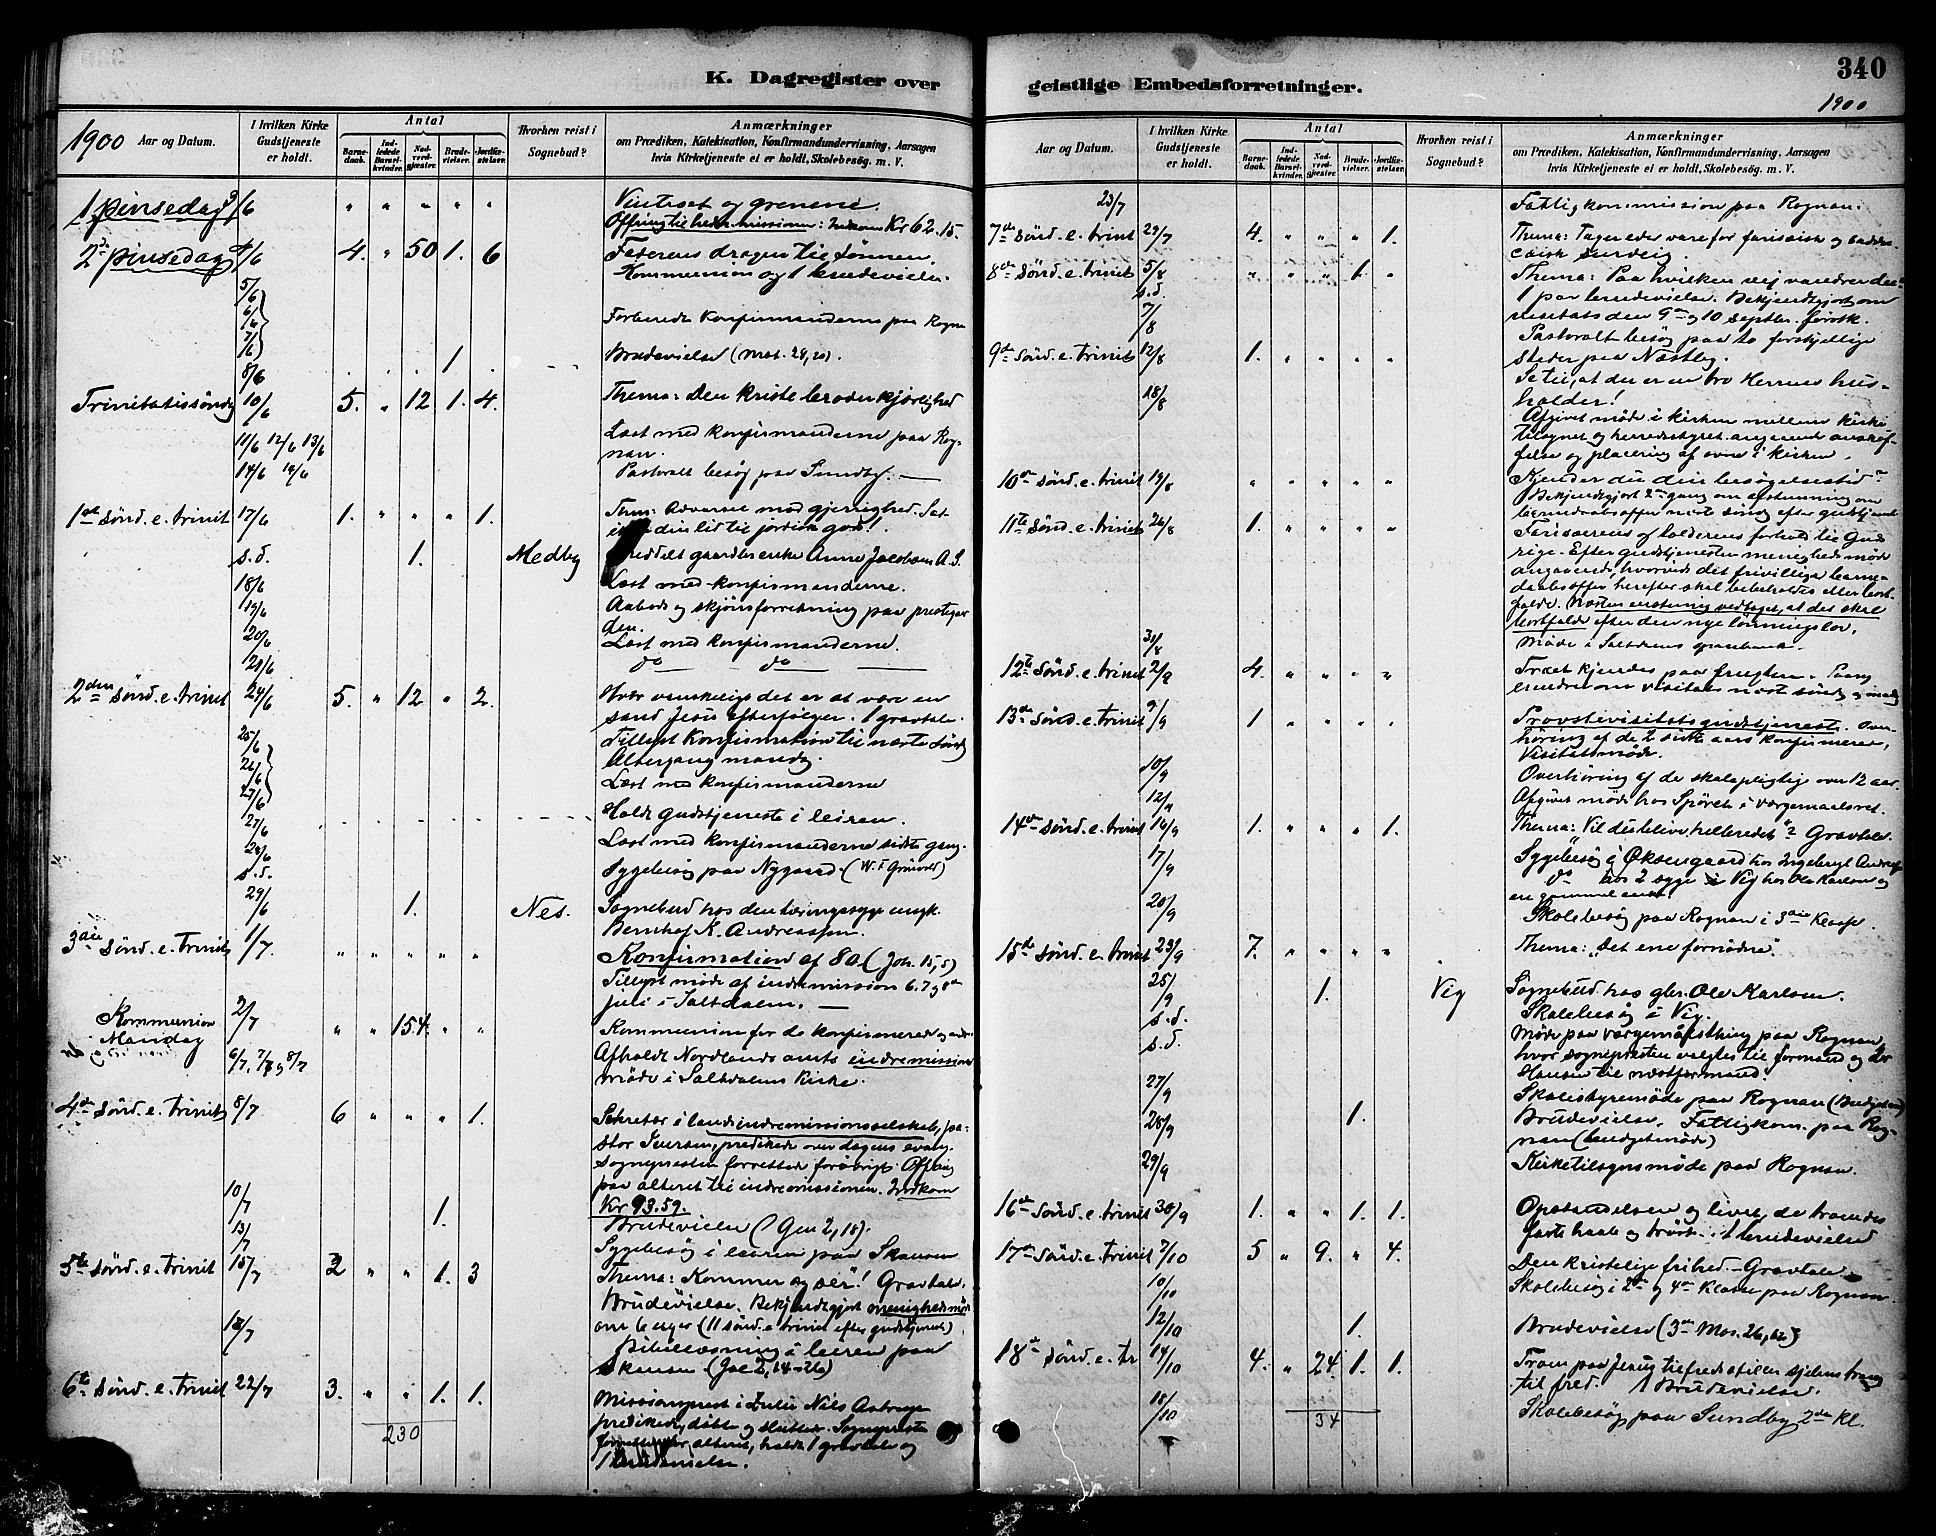 K. Dagregister over
1900 Aar og Datum.
I hvilken Kirke Gudstjeneste er holdt.
Antal
Barnedaab.
Indledede Barselkvinder.
Nadverdgjester.
Brudevielser.
Jordfæstelser.
Hvorhen reist i Sognebud?
Anmærkninger
om Prædiken, Katekisation, Konfirmandundervisning, Aarsagen
hvis Kirketjeneste ei er holdt, Skolebesøg. m. V.
1 pinsedag 3/6 " " " " " Vintræet og grenene.
Offring til indremissionen: Indkom Kr 62.15.
2den pinsedag 4/6 4. " 50 1. 6 Faderens dragen til Sønnen.
Kommunion og 1 brudevielse.
5/6
6/6
7/6 Forberedt konfirmanderne paa Rognan
8/6 1. Brudevielse (Mat. 28,20).
Trinitatissøndag 10/6 5. " 12 1. 4. Thema: Den kristelige broderkjærlighed
11/6 12/6 13/6 Læst med konfirmanderne paa Rognan.
14/6 14/6 Pastoralt besøg paa Sundby. —
1ste Sønd. e. trinit 17/6 1. " " " 1. Them: Advarsel mod gjerrighed. Sæt
ikke din lid til jordisk gods!
s.d. 1. Medby Anne Jacobsen A.S.
18/6 Læst med konfirmanderne.
19/6 Aabods og skjønsforretning paa prestegaarden.
20/6 Læst med konfirmanderne.
21/6 do — do —
2den Sønd. e. trinit 24/6 5. " 12 " 2. Hvor vanskelig det er at være en
sand Jesu efterfølger. 1 gravtale.
Tillyst konfirmation til næste søndag
25/6 Altergang mandag.
26/6
27/6 Læst med konfirmanderne
27/6 Holdt gudstjeneste i leiren.
28/6 Læst med konfirmanderne sidste gang.
s.d. Sygebesøg paa Nygaard.
29/6 1. Nes. Sognebud hos den tæringssyge ungk.
Bernhof K. Andreassen.
3die Sønd. e. trinit 1/7. " " " " " Konfirmation af 80 (Joh. 15,5)
Tillyst møde af indremission 6. 7 og 8de
juli i Saltdalen. —
Kommunion Mandag 2/7 " " 154. " " Kommunion for de konfirmerede og andre.
6/7, 7/7 og 8/7 Afholdt Nordlands amts indremissions
møde i Saltdalens Kirke.
4de Sønd. e. trinit 8/7 6 " " " 1. Sekretær i landindremissionsselskab, pastor
Iversen, prædikede over dagens evang.
Sognepresten forrettede forøvrigt. Ofring
paa alteret til indremissionen. Indkom
Kr 93.59.
10/7 1. Brudevielse (Gen 2,18).
13/7 Sygebesøg i leiren paa Skansen
5te Sønd. e. trinit 15/7 2 " " 1. 3 Thema: Kommer og ser! Gravtale.
Brudevielse. Bekjendtgjort menighedsmøde
om 6 uger (11 sønd. e trinit efter gudstjenest).
18/7 Bibellæsning i leiren paa
Skansen
6te Sønd. e. trinit 22/7 3. " " 1. 1. Missionsprest i Zulu Nils Astrup
prædikede, døbte og sluttede. Sognepresten
alteret, holdt 1 gravtale og
1 brudevielse.
230
geistlige Embedsforretninger.
340
1900
Aar og Datum.
I hvilken Kirke Gudstjeneste er holdt.
Antal
Barnedaab.
Indledede Barselkvinder.
Nadverdgjester.
Brudevielser.
Jordfæstelser.
Hvorhen reist i Sognebud?
Anmærkninger
om Prædiken, Katekisation, Konfirmandundervisning, Aarsagen
hvis Kirketjeneste ei er holdt, Skolebesøg. m. V.
23/7 Fattigkommission paa Rognan.
7de Sønd. e. trinit 29/7 4. " " " 1. Thema: Tager eder vare for farisæisk og saddu-
cæisk surdeig.
8de Sønd. e. trinit 5/8 " " " 1. " Thema: Paa hvilken vej vandrer du?
s.d. 1 par brudevielse. Bekjendtgjort om
visitats den 9de og 10 septbr. førstk.
7/8 Pastoralt besøg paa to forskjellige
steder paa Næstby.
9de Sønd. e. trinit 12/8 1. " " " " Se til, at du er en tro Herrens hus-
holder!
18/8 Afgivet møde i kirken mellem kirke-
tilsynet og herredsstyret angaaende anskaf-
felse og placering af ovne i kirken.
10de Sønd. e. trinit 19/8 " " " " " Kjender du din besøgelsestid?
Bekjendtgjort 2den gang om afstemning om
barnedaabsoffer næste søndag efter gudstjeneste
11te Sønd. e. trinit 26/8 1. " " " " Farisæerens og tolderens forhold til Guds
rige. Efter gudstjenesten menighedsmøde
angaaende, hvorvidt det frivillige barne-
daabsoffer herefter skal beholdes eller bort-
falde. Næsten enstemmig vedtaget, at det skal
bortfalde efter den nye lønningslov.
31/8 Møde i Saltdalens sparebank.
12te Sønd. e. trinit 2/9 4. " " " " Træet kjendes paa frugten.
om visitats næste søndag og mandag
13de Sønd. e. trinit 9/9 1 " " " " Provstevisitatsgudstjeneste. Over-
høring af de 2 sidste aars konfirmerede,
Visitatsmøde.
10/9 Overhøring af de skolepligtige over 12 aar.
12/9 Afgivet møde hos Spøret i værgemaalsret.
14de Sønd. e. trinit 16/9 1. " " " 1. Thema: "Vil du blive helbredet"? Gravtale.
17/9 Sygebesøg i Øksengaard hos Ingeborg
do hos 2 syge i Vig hos Ole Karlsen og
en gammel enke.
20/9 Skolebesøg paa Rognan i 3die Klasse.
15de Sønd. e. trinit 23/9 7. " " " " Thema: "Det ene fornødne".
25/9 1. Vig Sognebud hos gbr. Ole Karlsen.
s.d. Skolebesøg i Vig.
s.d. Møde paa værgemaalsthing paa Rognan,
hvor sognepresten valgtes til formand og
Hansen til næstformand.
27/9 Skolestyremøde paa Rognan (Budget)
28/9 1. Brudevielse. Fattigkom. paa Rog-
nan (budgetmøde)
29/9 Kirketilsynsmøde paa Rognan.
16de Sønd. e. trinit 30/9 1. " " 1. 1. Opstandelsen og livet, de troendes
faste haab og trøst. 1 brudevielse
17de Sønd. e. trinit 7/10 5 " 9. " 4. Den kristelige frihed. — Gravtale.
10/10 Skolebesøg i 2den og 4de Klasse paa Rognan.
12/10 1. Brudevielse
18de Sønd. e. Tr 14/10 4. " 24. 1. 1. Troen paa Jesus tilfredsstiller sjelens trang
til fred. 1 Brudevielse.
18/10 Skolebesøg paa Sundby 2den Kl.
34